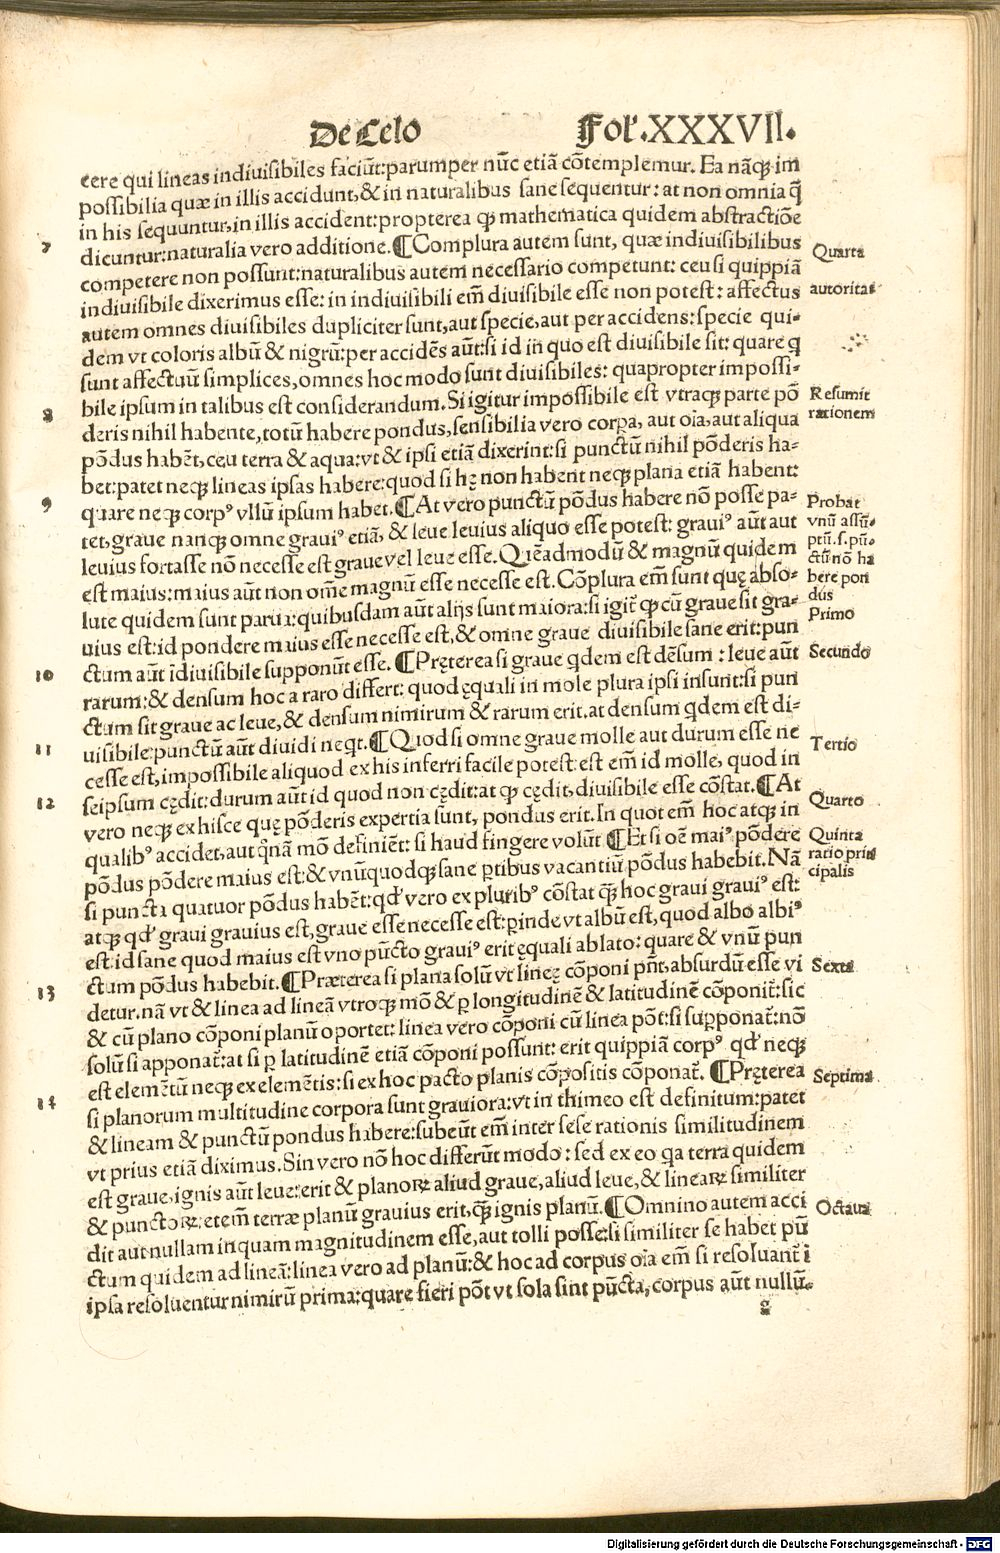 De Celo Fol'.XXXVII.
cere qui lineas indiuisibiles faciūt:parumper nūc etiā cōtemplemur. Ea nāqꝫ im
possibilia quæ in illis accidunt,& in naturalibus sane sequentur: at non omnia q̄
in his sequuntur,in illis accident:propterea qꝫ mathematica quidem abstractiōe
7 dicuntur:naturalia vero additione.¶Complura autem sunt, quæ indiuisibilibus
Quarta
competere non possunt:naturalibus autem necessario competunt: ceu si quippiā
autoritas
indiuisibile dixerimus esse: in indiuisibili em̄ diuisibile esse non potest: affectus
autem omnes diuisibiles dupliciter sunt,aut specie,aut per accidens:specie qui-
dem vt coloris albū & nigrū:per accidēs aūt:si id in quo est diuisibile sit: quare q
sunt affectuū simplices,omnes hoc modo sunt diuisibiles: quapropter impossi-
8 bile ipsum in talibus est considerandum.Si igitur impossibile est vtraqꝫ parte pō
Resumit
rationem
deris nihil habente,totū habere pondus,sensibilia vero corpa, aut oīa,aut aliqua
pōdus habēt,ceu terra & aqua:vt & ipsi etiā dixerint:si punctū nihil pōderis ha-
bet:patet neqꝫ lineas ipsas habere:quod si hę non habent neqꝫ plana etiā habent:
9 quare neqꝫ corpꝰ vllū ipsum habet.¶At vero punctū pōdus habere nō posse pa-
Probat
vnū assū-
ptū.s.pū-
ctū nō ha
bere pon
dus
Primo
tet,graue nanqꝫ omne grauiꝰ etiā, & leue leuius aliquo esse potest: grauiꝰ aūt aut
leuius fortasse nō necesse est graue vel leue esse.Quēadmodū & magnū quidem
est maius:maius aūt non om̄e magnū esse necesse est.Cōplura em̄ sunt quę abso-
lute quidem sunt parua:quibusdam aūt alijs sunt maiora:si igit̄ qꝫ cū graue sit gra-
uius est:id pondere maius esse necesse est,& omne graue diuisibile sane erit:pun
10 ctum aūt īdiuisibile supponūt esse.¶Pręterea si graue qdem est dēsum:leue aūt
Secundo
rarum:& densum hoc a raro differt: quod ęquali in mole plura ipsi insunt:si pun
ctum sit graue ac leue,& densum nimirum & rarum erit.at densum qdem est di-
11 uisibile:punctū aūt diuidi neqt.¶Quod si omne graue molle aut durum esse ne
Tertio
cesse est,impossibile aliquod ex his inferri facile potest:est em̄ id molle, quod in
12 seipsum cędit:durum aūt id quod non cędit:at qꝫ cędit,diuisibile esse cōstat.¶At
Quarto
vero neqꝫ ex hisce quę pōderis expertia sunt, pondus erit.In quot em̄ hoc atqꝫ in
Quinta
ratio prin
cipalis
qualibꝰ accidet,aut qnā mō definiēt: si haud fingere volūt ¶Et si oē maiꝰ pōdere
pōdus pōdere maius est:& vnūquodqꝫ sane ptibus vacantiū pōdus habebit.Nā
si puncta quatuor pōdus habēt:qd' vero ex pluribꝰ cōstat qꝫ hoc graui grauiꝰ est:
atqꝫ qd' graui grauius est,graue esse necesse est:pinde vt albū est,quod albo albiꝰ
est:id sane quod maius est vno pūcto grauiꝰ erit ęquali ablato:quare & vnū pun
ctum pōdus habebit.¶Præterea si plana solū vt lineę cōponi pn̄t,absurdū esse vi
Sexta
13 detur.nā vt & linea ad lineā vtroqꝫ mō & p longitudinē & latitudinē cōponit̄:sic
& cū plano cōponi planū oportet: linea vero cōponi cū linea pōt:si supponat̄:nō
solū si apponat̄:at si p latitudinē etiā cōponi possunt: erit quippiā corpꝰ qd' neqꝫ
est elemētū neqꝫ ex elemētis:si ex hoc pacto planis cōpositis cōponat̄. ¶Pręterea
Septima
14 si planorum multitudine corpora sunt grauiora:vt in thimeo est definitum:patet
& lineam & punctū pondus habere:subeūt em̄ inter sese rationis similitudinem
vt prius etiā diximus.Sin vero nō hoc differūt modo: sed ex eo qa terra quidem
est graue,ignis aūt leue:erit & planoꝝ aliud graue,aliud leue,& lineaꝝ similiter
& punctoꝝ:etem̄ terræ planū grauius erit,qꝫ ignis planū.¶Omnino autem acci
Octaua
dit aut nullam inquam magnitudinem esse,aut tolli posse:si similiter se habet pū
ctum quidem ad lineā:linea vero ad planū:& hoc ad corpus oīa em̄ si resoluant̄ i
ipsa resoluentur nimirū prima:quare fieri pōt vt sola sint pūcta, corpus aūt nullū.
g
Digitalisierung gefördert durch die Deutsche Forschungsgemeinschaft - DFG